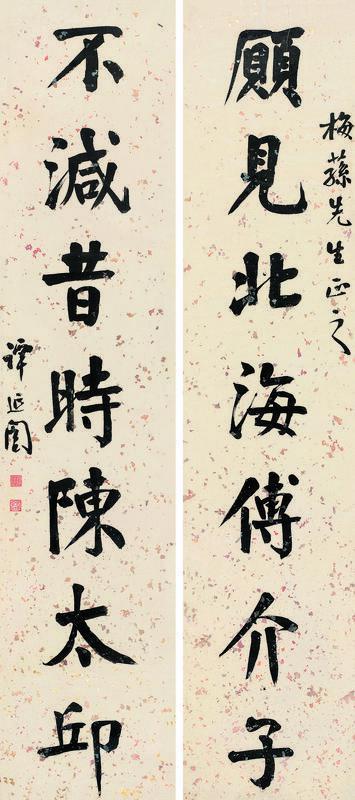 梅蓀先生正之
願見北海傅介子
不減昔時陳太邱
譚延闓